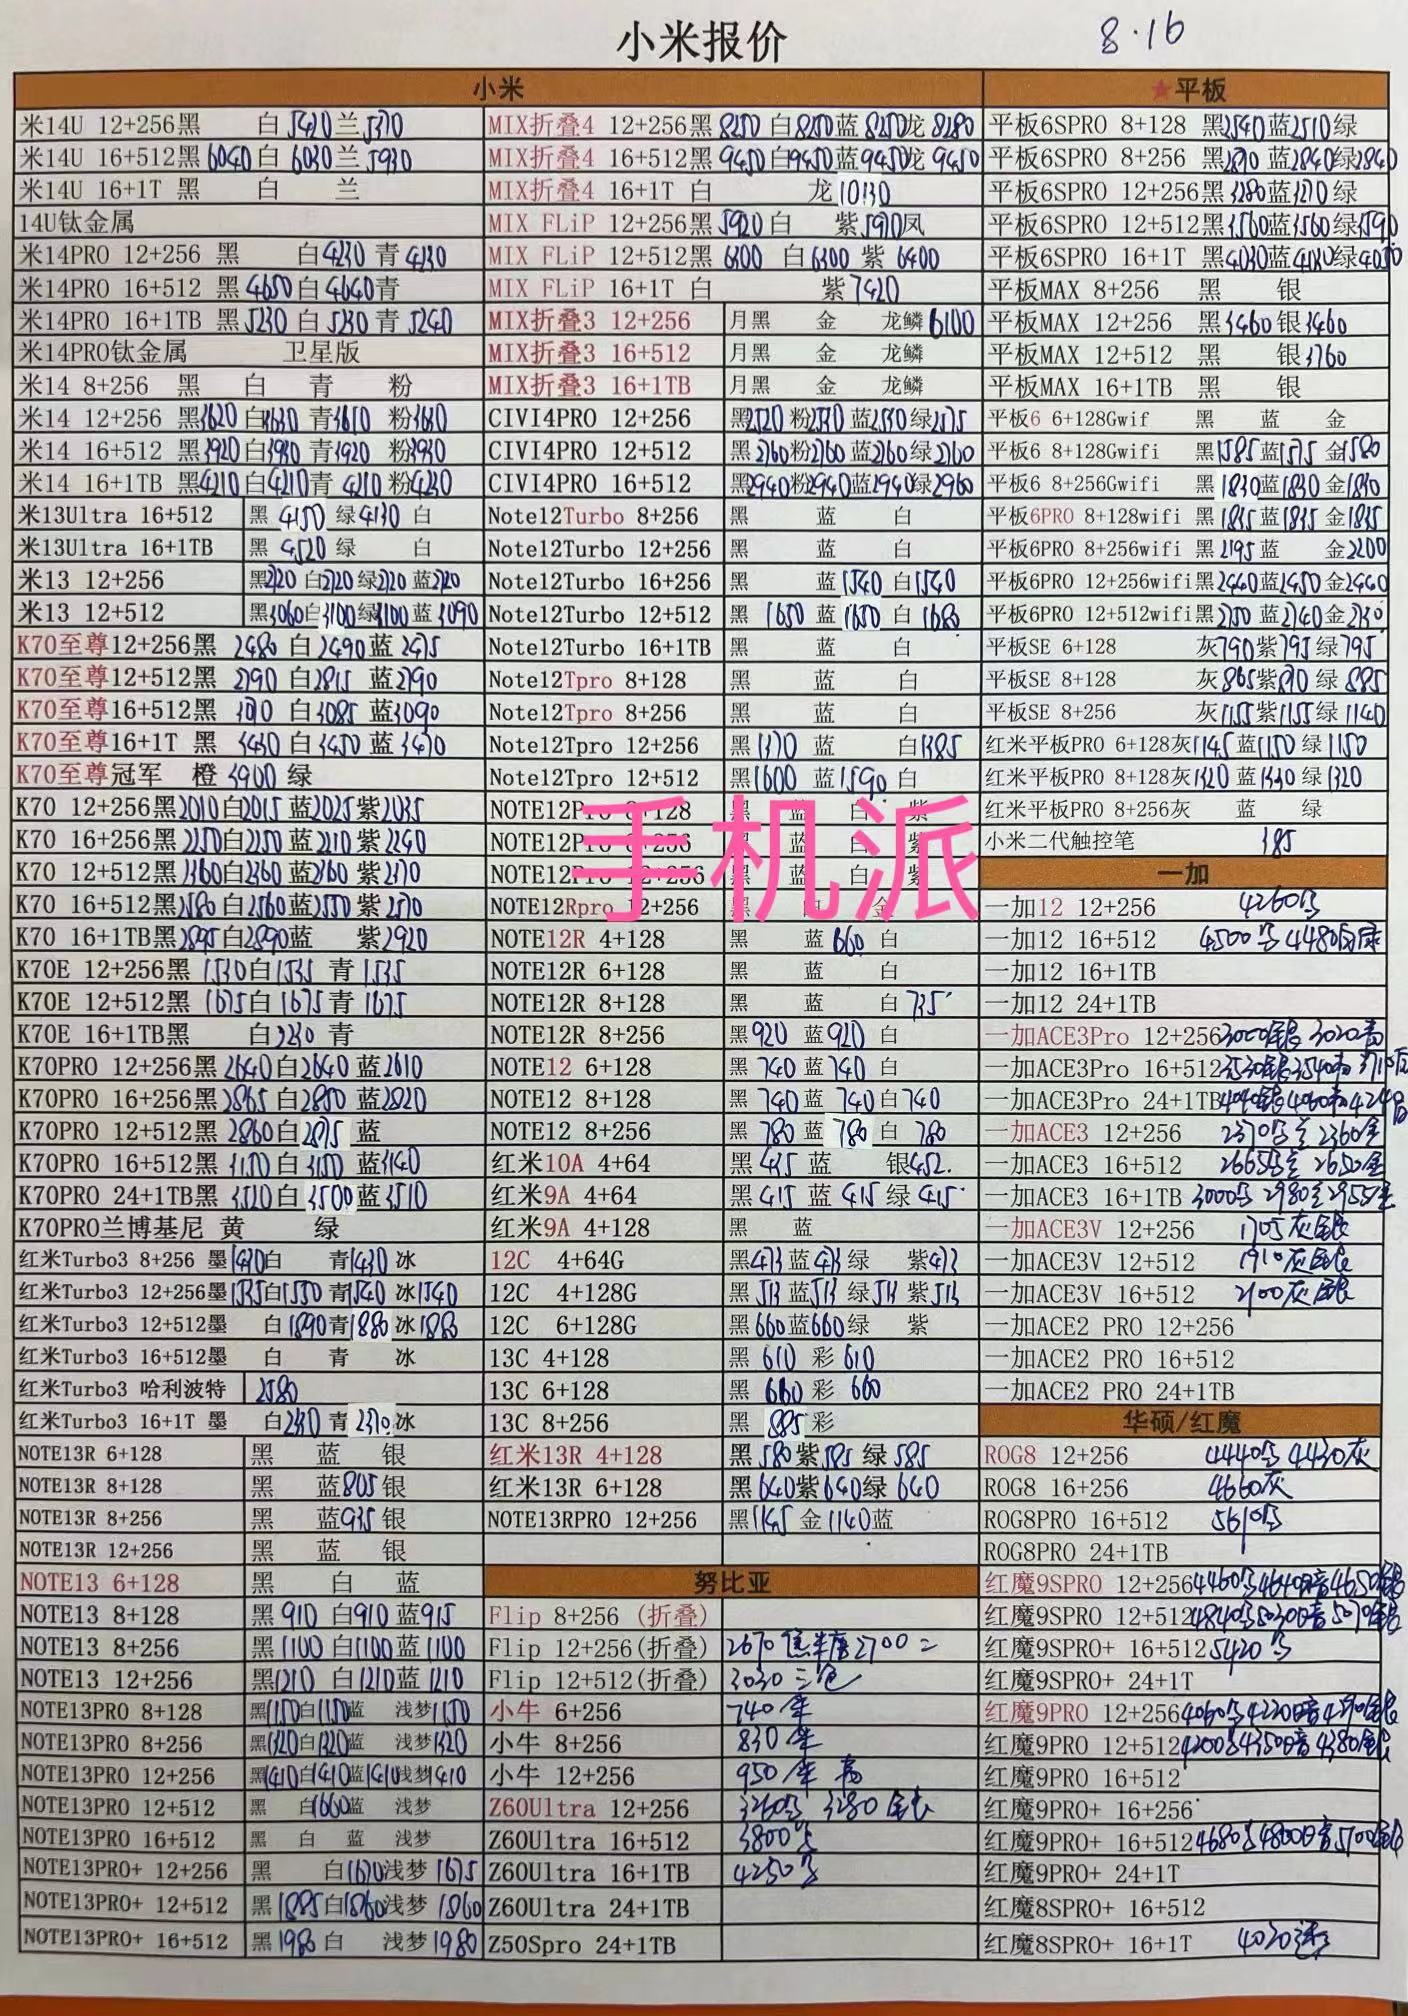 小米报价
8.16
小米
米14U 12+256黑 白5420兰5370
米14U 16+512黑6040白 6030兰5930
米14U 16+1T 黑 白 兰
14U钛金属
米14PRO 12+256 黑 白4230 青4230
米14PRO 16+512 黑4650白4640青
米14PRO 16+1TB 黑5230 白5230 青5240
米14PRO钛金属 卫星版
米14 8+256 黑 白 青 粉
米14 12+256 黑3620 白3630 青3610 粉3630
米14 16+512 黑3920白3930 青3920 粉3930
米14 16+1TB 黑4210白4210青 4210 粉4230
米13Ultra 16+512 黑 4150 绿4130 白
米13Ultra 16+1TB 黑 4520 绿 白
米13 12+256 黑2720 白2720 绿2720 蓝2720
米13 12+512 黑3060白3100绿3100蓝3090
K70至尊12+256黑 2480 白 2490蓝 2475
K70至尊12+512黑 2790 白2815 蓝2790
K70至尊16+512黑 3070 白3085 蓝3090
K70至尊16+1T 黑 3430 白3450 蓝3470
K70至尊冠军 橙 3900 绿
K70 12+256黑2010白2015 蓝2025紫2035
K70 16+256黑2250白2250 蓝2210紫2240
K70 12+512黑2360白2360蓝2360 紫2370
K70 16+512黑2580白2560蓝2550紫2570
K70 16+1TB黑2895白2890蓝 紫2920
K70E 12+256黑 1530白1535 青 1535
K70E 12+512黑 1675白1675青 1675
K70E 16+1TB黑 白2230 青
K70PRO 12+256黑2640白2640 蓝2610
K70PRO 16+256黑2865 白2850 蓝2820
K70PRO 12+512黑2860白2875 蓝
K70PRO 16+512黑3150白3150 蓝3140
K70PRO 24+1TB黑3520白 3500蓝3510
K70PRO兰博基尼 黄 绿
红米Turbo3 8+256 墨1430白 青1430 冰
红米Turbo3 12+256墨1535白1550 青1540 冰1540
红米Turbo3 12+512墨 白1890青1880冰1880
红米Turbo3 16+512墨 白 青 冰
红米Turbo3 哈利波特 2580
红米Turbo3 16+1T 墨 白2330 青2370冰
NOTE13R 6+128 黑 蓝 银
NOTE13R 8+128 黑 蓝805银
NOTE13R 8+256 黑 蓝935银
NOTE13R 12+256 黑 蓝 银
NOTE13 6+128 黑 白 蓝
NOTE13 8+128 黑910 白910蓝915
NOTE13 8+256 黑1100白1100蓝1100
NOTE13 12+256 黑1210 白1210蓝1210
NOTE13PRO 8+128 黑1150白1150蓝 浅梦1150
NOTE13PRO 8+256 黑1320白1320蓝 浅梦1320
NOTE13PRO 12+256 黑1410白1410蓝1410浅梦1410
NOTE13PRO 12+512 黑 白1660蓝 浅梦
NOTE13PRO 16+512 黑 白 蓝 浅梦
NOTE13PRO+ 12+256 黑 白1670浅梦1675
NOTE13PRO+ 12+512 黑1885白1860浅梦1860
NOTE13PRO+ 16+512 黑1980白 浅梦1980
MIX折叠4 12+256黑8250白8250蓝8250龙8280
MIX折叠4 16+512黑9450白9450蓝9450龙 9450
MIX折叠4 16+1T 白 龙10130
MIX FLiP 12+256黑5920白 紫5910凤
MIX FLiP 12+512黑6300 白6300 紫 6400
MIX FLiP 16+1T 白 紫7420
MIX折叠3 12+256 月黑 金 龙鳞6100
MIX折叠3 16+512 月黑 金 龙鳞
MIX折叠3 16+1TB 月黑 金 龙鳞
CIVI4PRO 12+256 黑2520粉2530蓝2530绿2575
CIVI4PRO 12+512 黑2760粉2760蓝2760绿2760
CIVI4PRO 16+512 黑2940粉2940蓝2940绿2960
Note12Turbo 8+256 黑 蓝 白
Note12Turbo 12+256 黑 蓝 白
Note12Turbo 16+256 黑 蓝1540 白1540
Note12Turbo 12+512 黑 1650 蓝1650 白 1680
Note12Turbo 16+1TB 黑 蓝 白
Note12Tpro 8+128 黑 蓝 白
Note12Tpro 8+256 黑 蓝 白
Note12Tpro 12+256 黑1370 蓝 白1385
Note12Tpro 12+512 黑1600 蓝1590白
NOTE12Pro 8+128 黑 蓝 白 紫
NOTE12Pro 8+256 黑 蓝 白 紫
NOTE12Pro 12+256 黑 蓝 白 紫
NOTE12Rpro 12+256 黑 白 金
手机派
NOTE12R 4+128 黑 蓝660白
NOTE12R 6+128 黑 蓝 白
NOTE12R 8+128 黑 蓝 白735
NOTE12R 8+256 黑920 蓝920白
NOTE12 6+128 黑 740蓝740白
NOTE12 8+128 黑 740蓝 740白740
NOTE12 8+256 黑 780 蓝 780 白 780
红米10A 4+64 黑435蓝 银452
红米9A 4+64 黑415 蓝 415 绿415
红米9A 4+128 黑 蓝
12C 4+64G 黑473蓝473绿 紫473
12C 4+128G 黑513蓝513 绿513紫513
12C 6+128G 黑660蓝660绿 紫
13C 4+128 黑 610 彩 610
13C 6+128 黑 660 彩 660
13C 8+256 黑 885 彩
红米13R 4+128 黑580紫585 绿585
红米13R 6+128 黑640紫640绿 640
NOTE13RPRO 12+256 黑1145 金1140蓝
努比亚
Flip 8+256 (折叠)
Flip 12+256(折叠) 2670 2700
Flip 12+512(折叠) 3030 三色
小牛 6+256 740
小牛 8+256 830
小牛 12+256 950
Z60Ultra 12+256 3260 3280 银
Z60Ultra 16+512 3800
Z60Ultra 16+1TB 4250
Z60Ultra 24+1TB
Z50Spro 24+1TB
★平板
平板6SPRO 8+128 黑2540蓝2510绿
平板6SPRO 8+256 黑2870蓝2840绿2840
平板6SPRO 12+256黑3280蓝3270绿
平板6SPRO 12+512黑3560蓝3560绿3590
平板6SPRO 16+1T 黑4030蓝4030绿4050
平板MAX 8+256 黑 银
平板MAX 12+256 黑3460 银3460
平板MAX 12+512 黑 银3760
平板MAX 16+1TB 黑 银
平板6 6+128Gwif 黑 蓝 金
平板6 8+128Gwifi 黑1585蓝1575 金1580
平板6 8+256Gwifi 黑 1830蓝1830 金1830
平板6PRO 8+128wifi 黑1835蓝1835 金1835
平板6PRO 8+256wifi 黑2195蓝 金2200
平板6PRO 12+256wifi黑2440蓝2450金2440
平板6PRO 12+512wifi黑2750蓝2740金2730
平板SE 6+128 灰790紫795绿795
平板SE 8+128 灰865紫870绿 885
平板SE 8+256 灰1155紫1155绿 1140
红米平板PRO 6+128灰1145蓝1150绿1150
红米平板PRO 8+128灰1320蓝1330绿1320
红米平板PRO 8+256灰 蓝 绿
小米二代触控笔 385
一加
一加12 12+256 4260
一加12 16+512 4500 4480
一加12 16+1TB
一加12 24+1TB
一加ACE3Pro 12+256 3000银 3020青
一加ACE3Pro 16+512 3530银3540青
一加ACE3Pro 24+1TB
一加ACE3 12+256 2370 2360金
一加ACE3 16+512 2665 2650金
一加ACE3 16+1TB 3000 2980 2955金
一加ACE3V 12+256 1705灰银
一加ACE3V 12+512 1910灰银
一加ACE3V 16+512 2100灰银
一加ACE2 PRO 12+256
一加ACE2 PRO 16+512
一加ACE2 PRO 24+1TB
华硕/红魔
ROG8 12+256 4440 4430灰
ROG8 16+256 4660灰
ROG8PRO 16+512 5610
ROG8PRO 24+1TB
红魔9SPRO 12+256 4460 4640暗4650银
红魔9SPRO 12+512 4840 5030暗5070银
红魔9SPRO+ 16+512 5420
红魔9SPRO+ 24+1T
红魔9PRO 12+256 4060 4220暗4270银
红魔9PRO 12+512 4200 4350暗4380银
红魔9PRO 16+512
红魔9PRO+ 16+256
红魔9PRO+ 16+512 4680 4800暗5100银
红魔9PRO+ 24+1T
红魔8SPRO+ 16+512
红魔8SPRO+ 16+1T 4020透